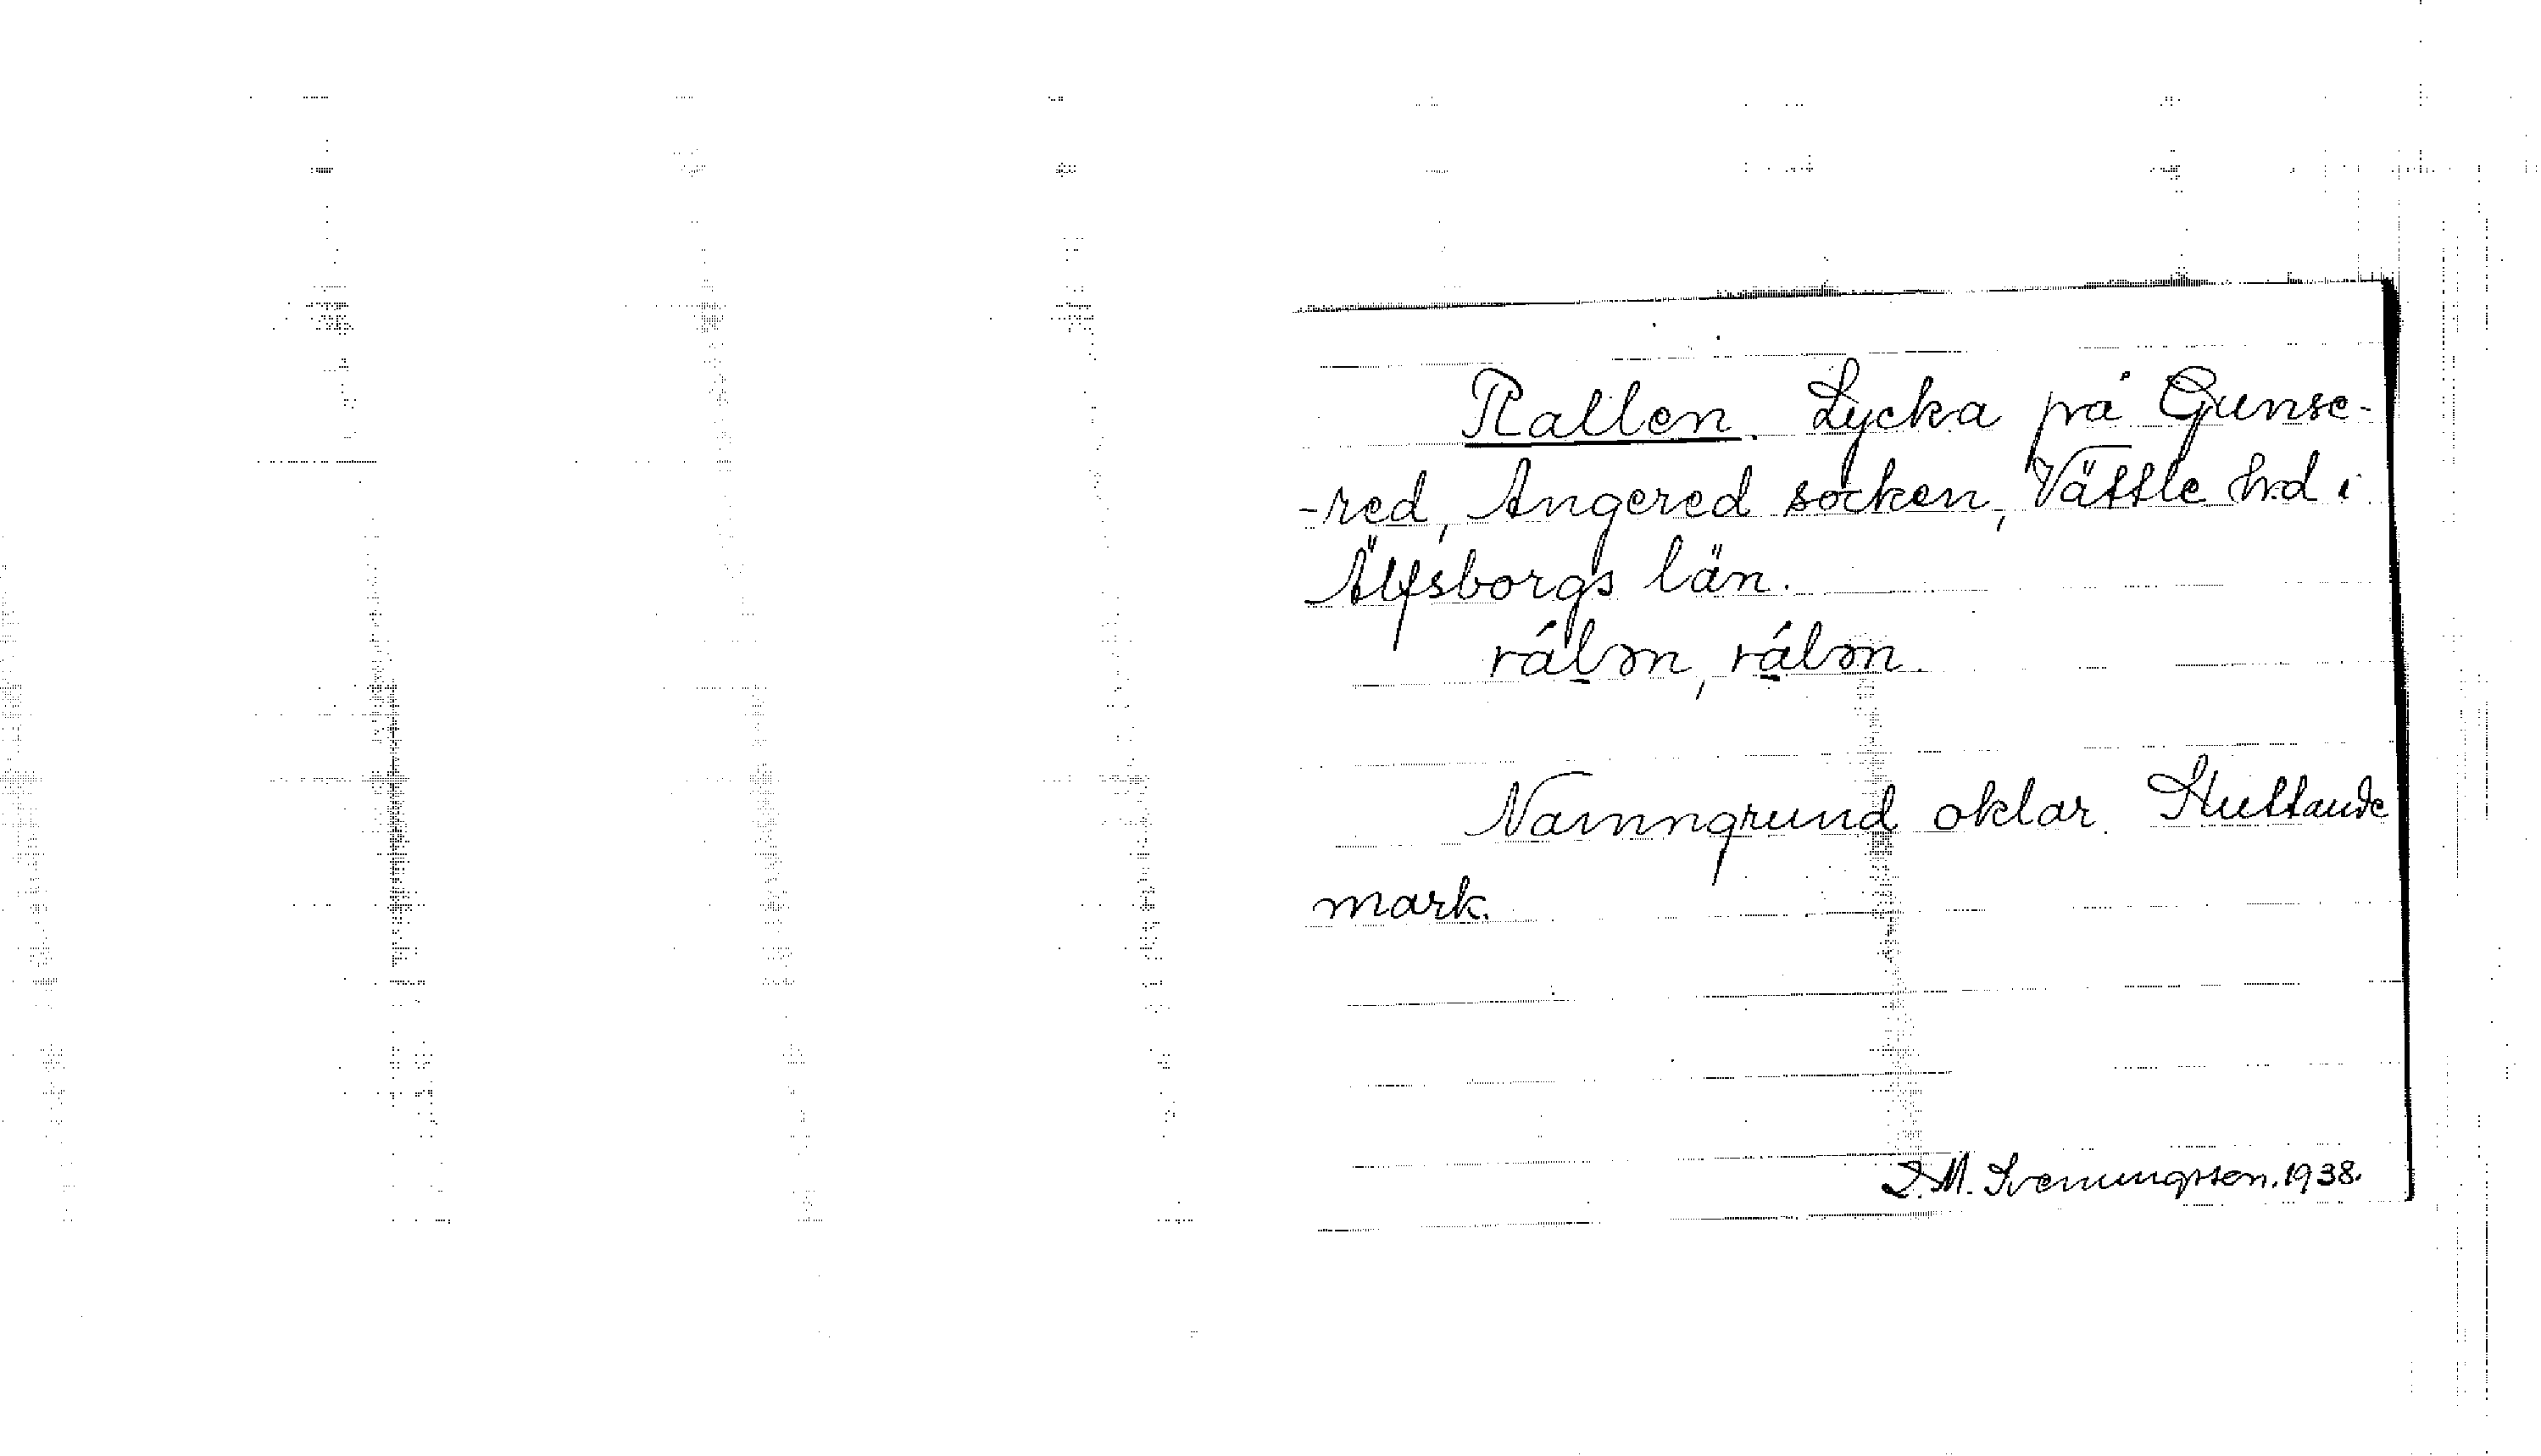 Rallen. Lycka på Gunse-
-red, Angered socken, Vättle hd i
Älfsborgs län.
rálən, rálən.
Namngrund oklar. Sluttande
mark.
S. M. Svenungsson. 1938.